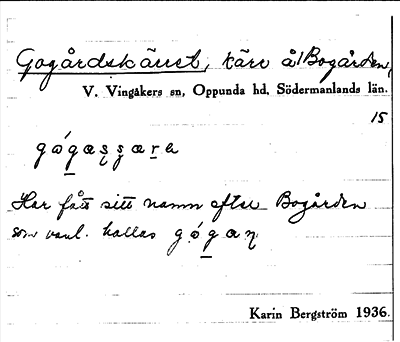 Gogårdskärret, kärr å Bogården,
V. Vingåkers sn, Oppunda hd. Södermanlands län.
15
Har fått sitt namn efter Bogården
som vanl. kallas
Karin Bergström 1936.